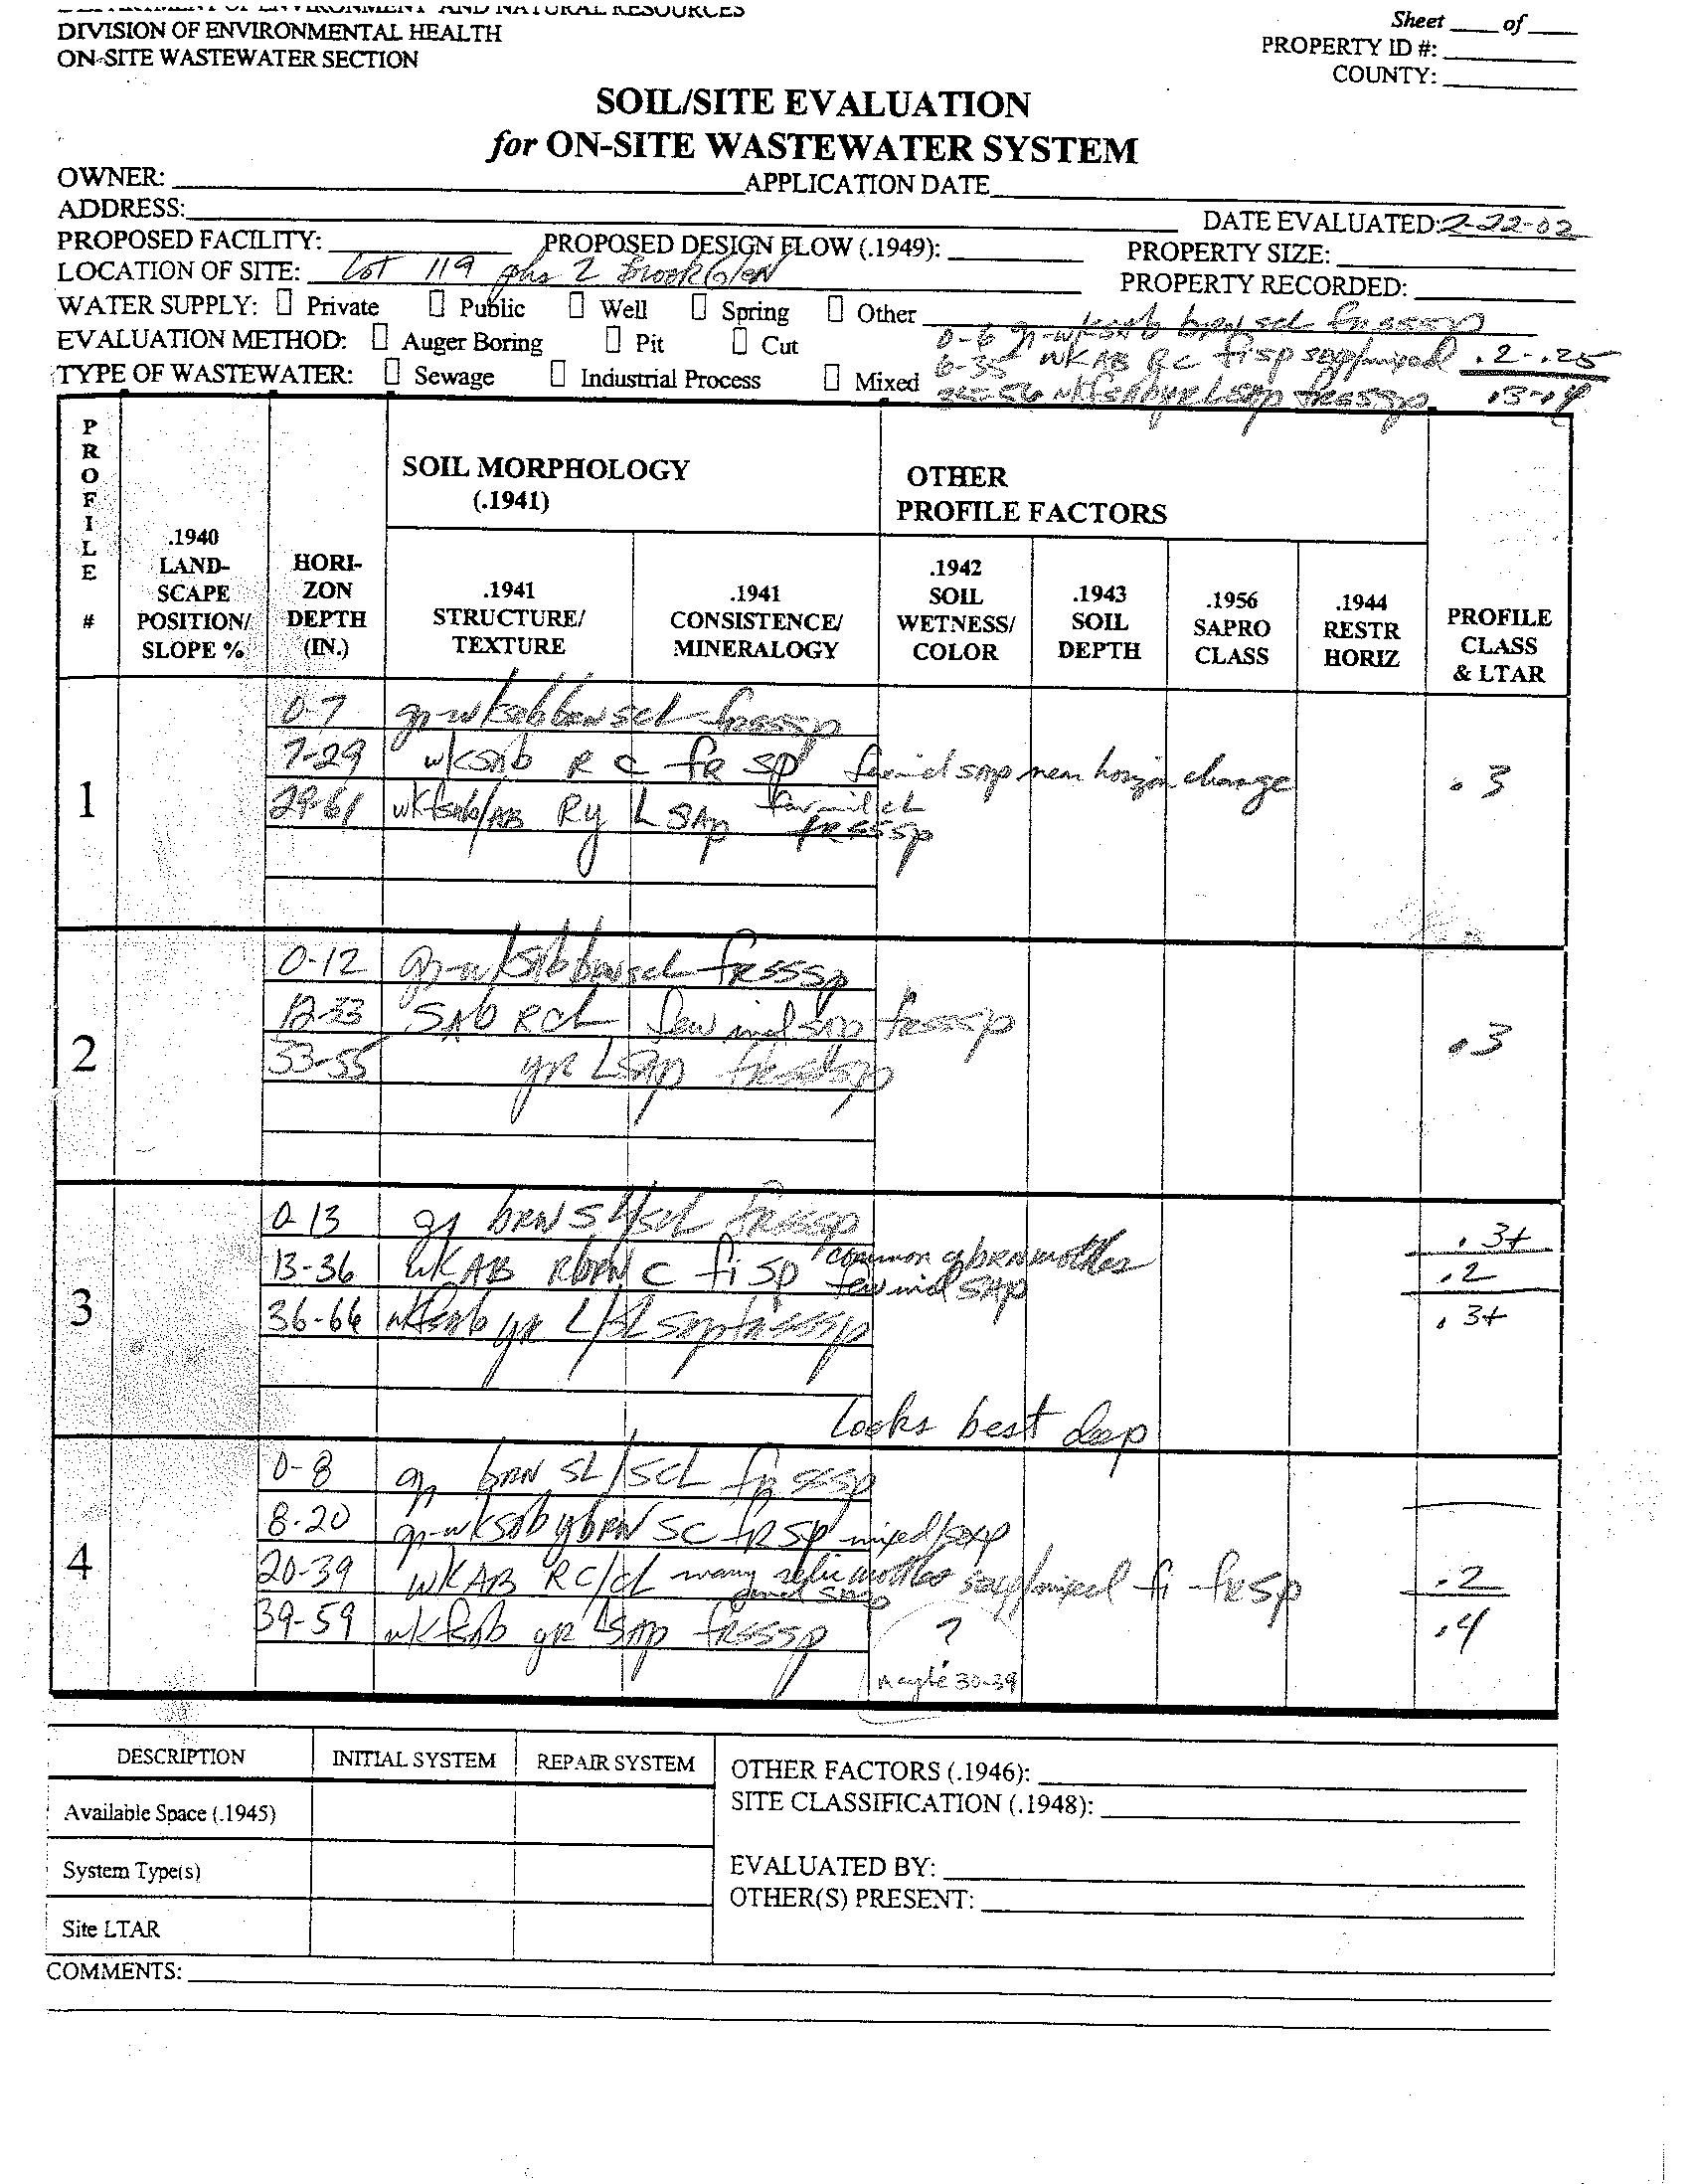 DEPARTMENT OF ENVIRONMENT AND NATURAL RESOURCES
DIVISION OF ENVIRONMENTAL HEALTH
ON-SITE WASTEWATER SECTION
Sheet ___ of ___
PROPERTY ID #:
COUNTY:
SOIL/SITE EVALUATION
for ON-SITE WASTEWATER SYSTEM
OWNER: APPLICATION DATE
ADDRESS: DATE EVALUATED: 2-22-02
PROPOSED FACILITY: PROPOSED DESIGN FLOW (.1949): PROPERTY SIZE:
LOCATION OF SITE: Lot 119 phs 2 BrookGlen PROPERTY RECORDED:
WATER SUPPLY: Private Public Well Spring Other
EVALUATION METHOD: Auger Boring Pit Cut
TYPE OF WASTEWATER: Sewage Industrial Process Mixed
0-6 gr-wksab brn scl fr sssp
6-35 wk AB RC fi sp sap/mixed .2-.25
wkfsab yr L sap fr sssp .3-.4
PROFILE #
.1940 LAND-SCAPE POSITION/ SLOPE %
HORI-ZON DEPTH (IN.)
SOIL MORPHOLOGY (.1941)
.1941 STRUCTURE/ TEXTURE
.1941 CONSISTENCE/ MINERALOGY
OTHER PROFILE FACTORS
.1942 SOIL WETNESS/ COLOR
.1943 SOIL DEPTH
.1956 SAPRO CLASS
.1944 RESTR HORIZ
PROFILE CLASS & LTAR
1
0-7 gr-wksab brn scl fr sssp
7-29 wksab R C fR sp few incl sap near horizon change .3
29-61 wkfsab/AB Ry L SAp few incl cL
fR sssp
2
0-12 gr-wksab brn scl fR sssp
12-33 SAb RCL few incl sap fr sssp .3
33-55 yR L SAp
3
0-13 gr bRN SL/scL fR sssp .3+
13-36 wk AB RbRN C fi sp common ybrn mottles .2
few incl SAp
36-66 wkfsab yR L/SL sap fr sssp .3+
Looks best deep
4
0-8 gr bRN SL/SCL fR sssp
8-20 gr-wksab ybRN SC fR sp mixed/sap
20-39 wk AB RC/cL many relic mottles sap/mixed fi-fR sp .2
39-59 wkfsab yR L SAp fR sssp ? .4
maybe 30-39
DESCRIPTION INITIAL SYSTEM REPAIR SYSTEM
Available Space (.1945)
System Type(s)
Site LTAR
OTHER FACTORS (.1946):
SITE CLASSIFICATION (.1948):
EVALUATED BY:
OTHER(S) PRESENT:
COMMENTS: